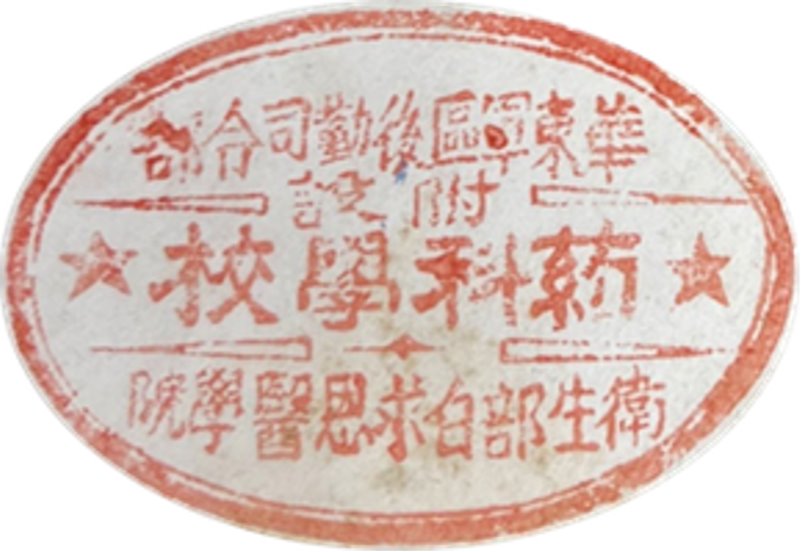 華東軍區後勤司令部
附設
葯科學校
衛生部白求恩醫學院